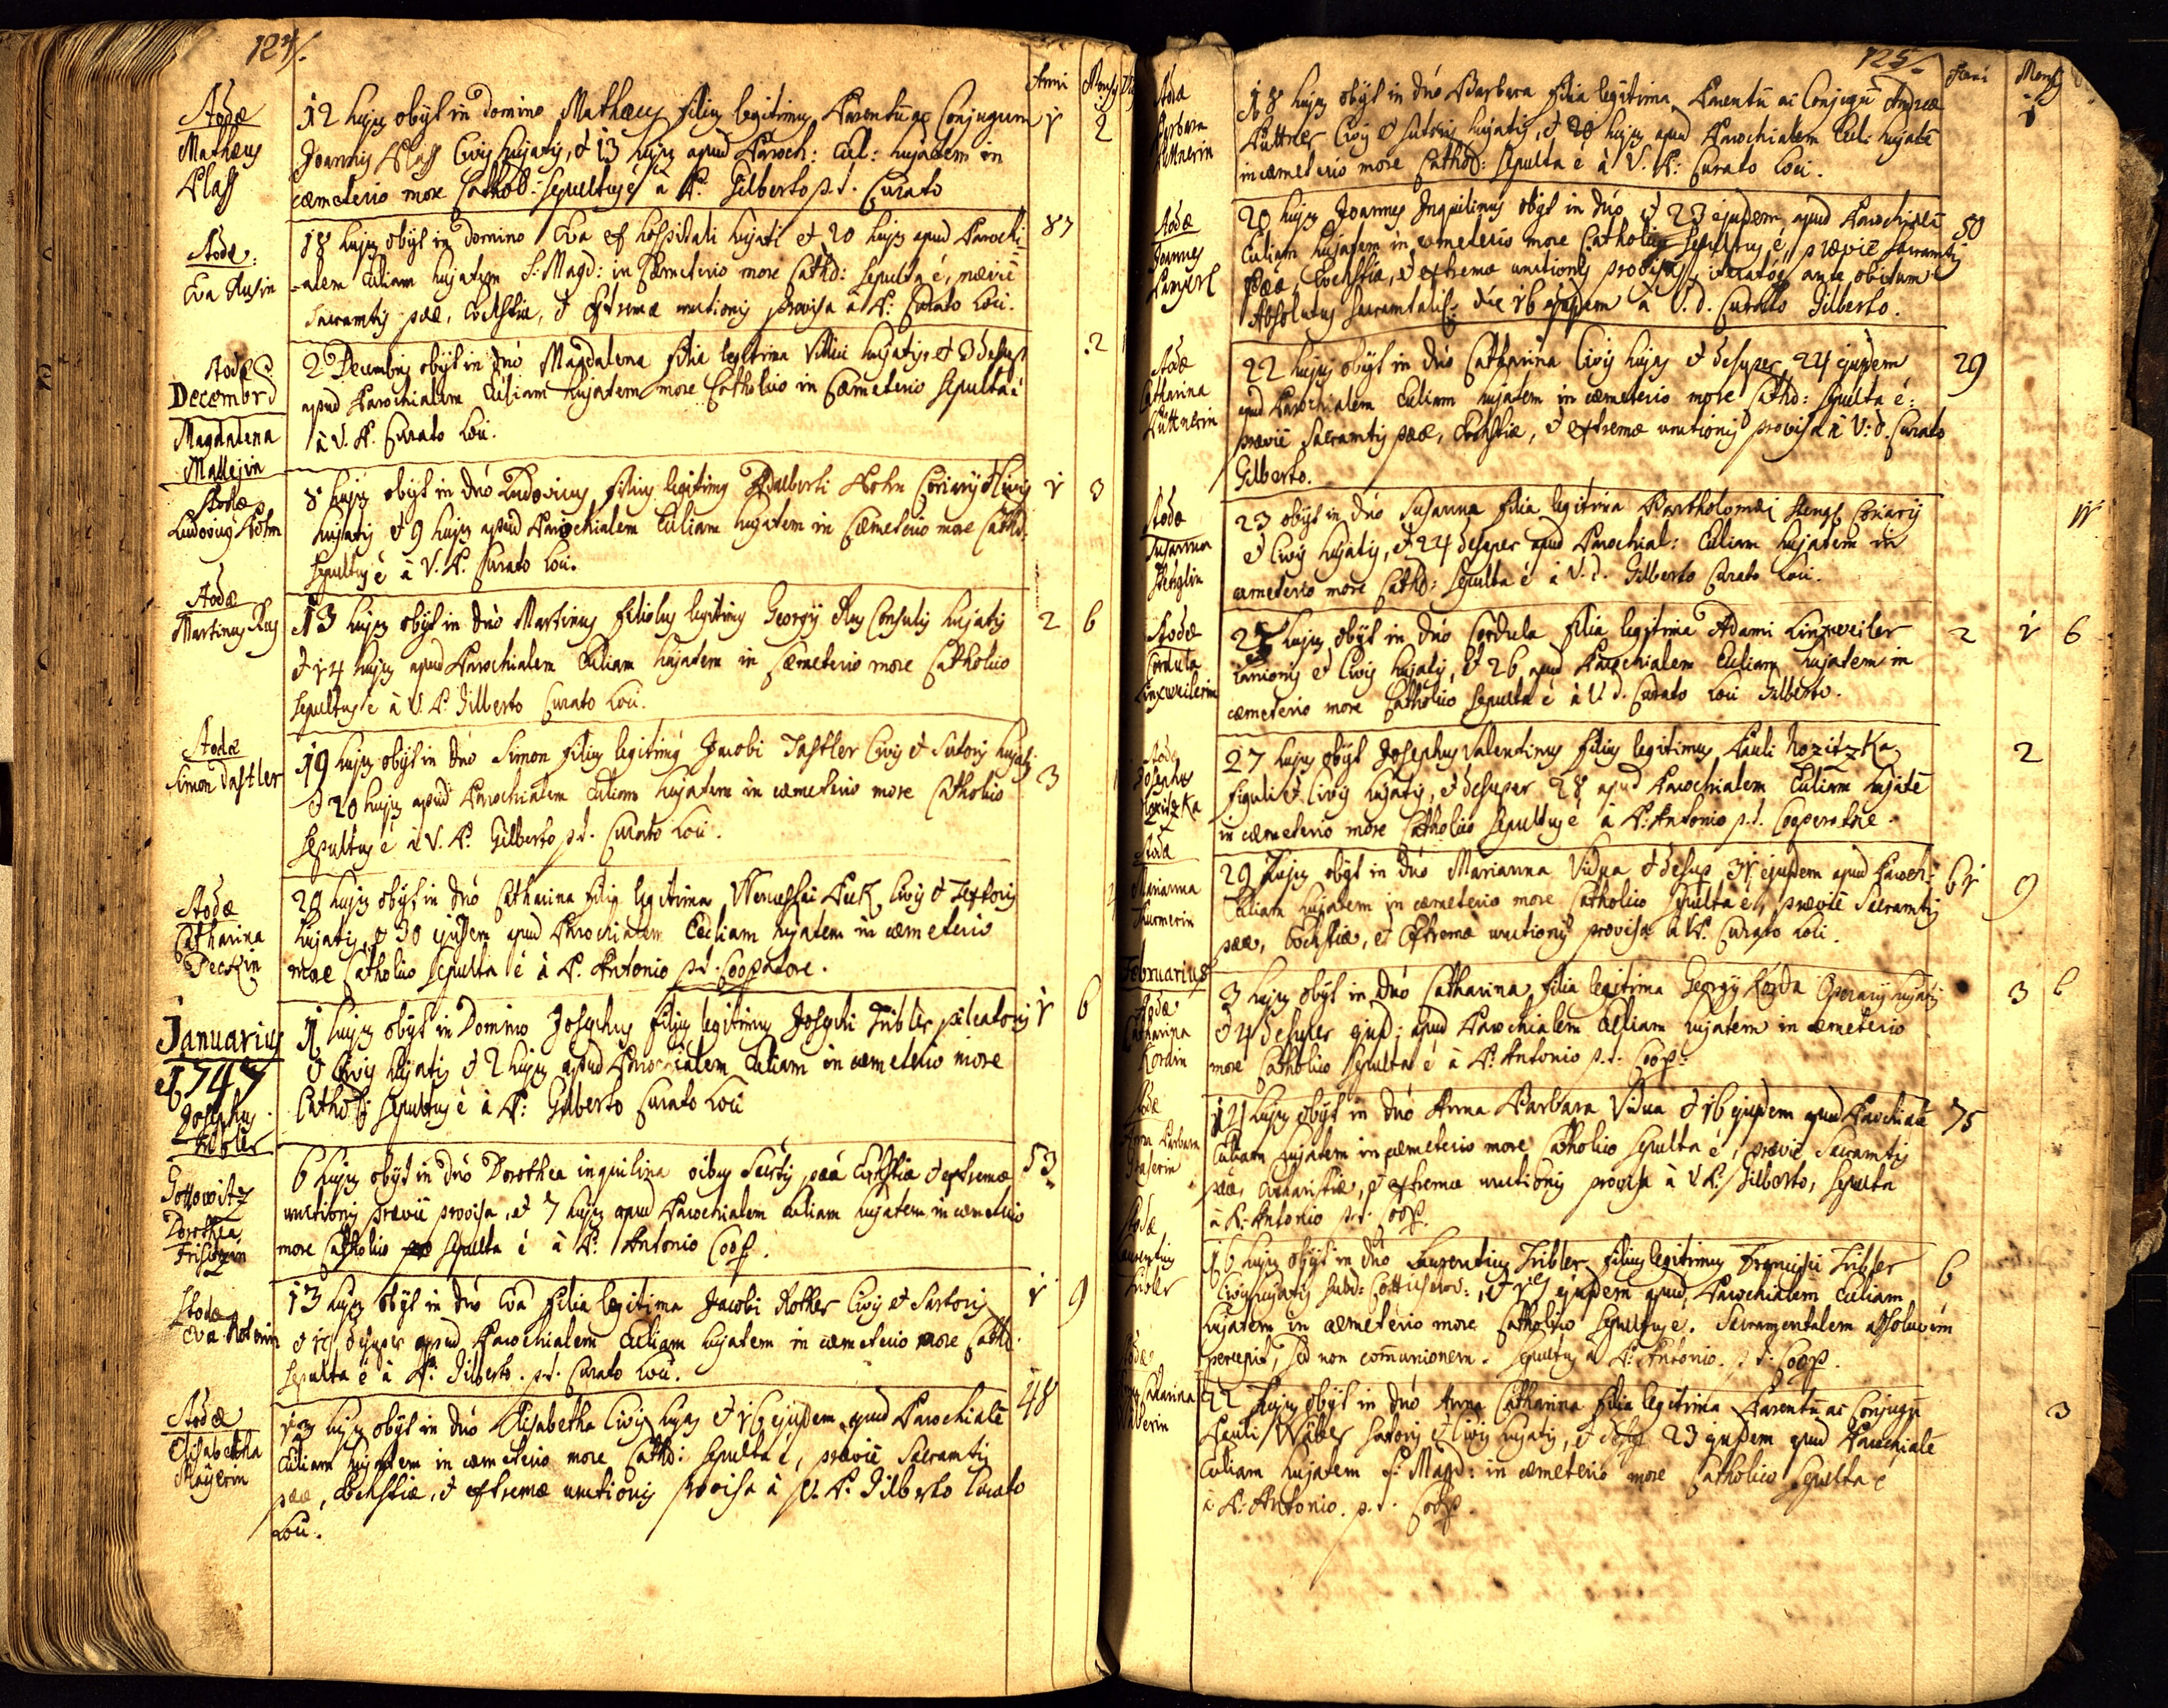 124.
Anni Mens
Stodæ
Mathæus
Plass
12 hujus obijt in Domino Mathæus filius legitimus Parentū ac Conjugum 1 2
Joannis Plass Civis hujatis, et 13 hujus apud Paroch: Ecl: hujatem in
cæmeterio more Cathol: sepultus é à P. Gilberto p.t. Curato
Stodæ:
Eva Rusin
18 hujus obijt in Domino Eva ex hospitali hujati et 20 hujus apud Parochi 87
alem Ecliam hujatem S: Magd: in Cæmeterio more Cathol: sepulta é, præviē
Sacramtis pææ, Eochstiæ, et Extremæ unctionis provisa à P. Curato Loci.
Stodæ
Decembr
Magdalena
Mallejin
2 Decembris obijt in Dnó Magdalena filia legitima Villici hujatis et 3 desup .2
apud Parochialem Ecliam hujatem more Catholico in Cæmeterio sepulta é
à V. P. Curato Loci.
Stodæ
Ludovicus Kohn
8 hujus obijt in Dnó Ludovicus filius legitimus Adalberti Kohn Coriarij et Civis 1 3
hujatis et 9 hujus apud Parochialem Ecliam hujatem in Cæmeterio more Cathol.
sepultus é à V. P. Curato Loci.
Stodæ
Martinus Rus
13 hujus obijt in Dnó Martinus filiolus legitimus Georgij Rus Consulis hujatis 2 6
et 14 hujus apud Parochialem Ecliam hujatem in Cæmeterio more Catholico
sepultus é à V. P. Gilberto Curato Loci.
Stodæ
Simon Tastler
19 hujus obijt in Dnó Simon filius legitimus Jacobi Tastler Civis et Sutoris hujatis 3
et 20 hujus apud Parochialem Ecliam hujatem in cæmeterio more Catholico
sepultus é à V. P. Gilberto p.t. Curato Loci.
Stodæ
Catharina
Peckin
29 hujus obijt in Dnó Catharina filia legitima Wenceslai Peck Civis et Textoris
hujatis, et 30 ejusdem apud Parochialem Ecliam hujatem in cæmeterio
more Catholico sepulta é à P. Antonio p.t. Coopatore.
Januarius
1747
Josephus
Tribler
1 hujus obijt in Domino Josephus filius legitimus Josephi Tribler pileatoris 1 6
et Civis hujatis et 2 hujus apud Parochialem Ecliam in cæmeterio more
Cathol: sepultus é à P: Gilberto Curato Loci
Gottowitz
Dorothea
6 hujus obijt in Dnó Dorothea inquilina oibus Sacrtis pææ Euchstiæ et extremæ 53
unctionis præviē provisa, et 7 hujus apud Parochialem Ecliam hujatem in cæmeterio
more Catholico sepulta é à P. Antonio Coop.
Stodæ
Eva Roterin
13 hujus obijt in Dnó Eva filia legitima Jacobi Rother Civis et Sartoris 1 9
et 14 desuper apud Parochialem Ecliam hujatem in cæmeterio more Cathol.
sepulta é à P. Gilberto. p.t. Curato Loci.
Stodæ
Elisabetha
Mayerin
13 hujus obijt in Dnó Elisabetha Civis hujas et 16 ejusdem apud Parochialē 48
Ecliam hujatem in cæmeterio more Cathol: sepulta é, præviē Sacramtis
pææ, Eochstiæ, et extremæ unctionis provisa à V. P. Gilberto Curato
Loci.
125.
Anni Mens
Stodæ
Barbara
Kuttnerin
18 hujus obijt in Dnó Barbara filia legitima Parentū ac Conjugū Andreæ 1
Kuttner Civis et Sutoris hujatis, et 20 hujus apud Parochialem Ecl: hujatē
in cæmeterio more Cathol: sepulta é à V. P: Curato Loci.
Stodæ
Joannes
20 hujus Joannes Inquilinus obijt in Dnó et 23 ejusdem apud Parochialē 50
Ecliam hujatem in cœmeterio more Catholico sepultus é, præviē Sacramtis
pææ, Eochstiæ, et extremæ unctionis provisus, iteratóq ante obitum
Absolutus Sacramtalit: die 16 ejusdem à V. d. Curato Gilberto.
Stodæ
Catharina
Kuttnerin
22 hujus obijt in Dnó Catharina Civis hujas et desuper 24 ejusdem 29
apud Parochialem Ecliam hujatem in cæmeterio more Cathol: sepulta é:
præviē Sacramtis pææ, Eochstiæ, et extremæ unctionis provisa à V: d. Curato
Gilberto.
Stodæ
Susanna
Stenglin
23 obijt in Dnó Susanna filia legitima Bartholomæi Stengl Coriarij 11
et Civis hujatis, et 24 desuper apud Parochial: Ecliam hujatem in
cæmeterio more Cathol: sepulta é à V. d. Gilberto Curato Loci.
Stodæ
Cordula
Linxweilerin
25 hujus obijt in Dnó Cordula filia legitima Adami Linxweiler 2 1 6
Lanionis et Civis hujatis, et 26 apud Parochialem Ecliam hujatem in
cæmeterio more Catholico sepulta é à V. d. Curato Loci Gilberto.
Stodæ
Josephus
Nozitzka
27 hujus obijt Josephus Valentinus filius legitimus Pauli Nozitzka 2
Figuli et Civis hujatis, et desuper 28 apud Parochialem Ecliam hujatē
in cæmeterio more Catholico sepultus é à P. Antonio p.t. Cooperatore.
Stodæ
Marianna
29 hujus obijt in Dnó Marianna Vidua et desup 31 ejusdem apud Paroch: 61 9
Ecliam hujatem in cæmeterio more Catholico sepulta é, præviē Sacramtis
pææ, Eochstiæ, et Extremæ unctionis provisa à P. Curato Loci.
Februarius
Stodæ
Catharina
Kordin
3 hujus obijt in Dnó Catharina filia legitima Georgij Korda Operarij hujatis 3 6
et 4 desuper ejusd: apud Parochialem Ecliam hujatem in cæmeterio
more Catholico sepulta é à P. Antonio p.t. Coop:
Stodæ
Anna Barbara
14 hujus obijt in Dnó Anna Barbara Vidua et 16 ejusdem apud Parochialē 75
Ecliam hujatem in cæmeterio more Catholico sepulta é, præviē Sacramtis
pææ, Eucharistiæ, et extremæ unctionis provisa à V P. Gilberto, sepulta
à P. Antonio p.t. Coop.
Stodæ
Laurentius
Tribler
16 hujus obijt in Dnó Laurentius Tribler filius legitimus Francisci Tribler 6
Civis hujatis et 18 ejusdem apud Parochialem Ecliam
hujatem in cæmeterio more Catholico sepultus é. Sacramentalem absolutionem
percepit, sed non communionem. Sepultus à P. Antonio. p.t. Coop.
Stodæ
Catharina
Waberin
22 hujus obijt in Dnó Anna Catharina filia legitima Parentū ac Conjugū 3
Pauli Waber Sartoris et Civis hujatis, et desup 23 ejusdem apud Parochialē
Ecliam hujatem S. Magd: in cæmeterio more Catholico sepulta é
à P. Antonio. p.t. Coop.